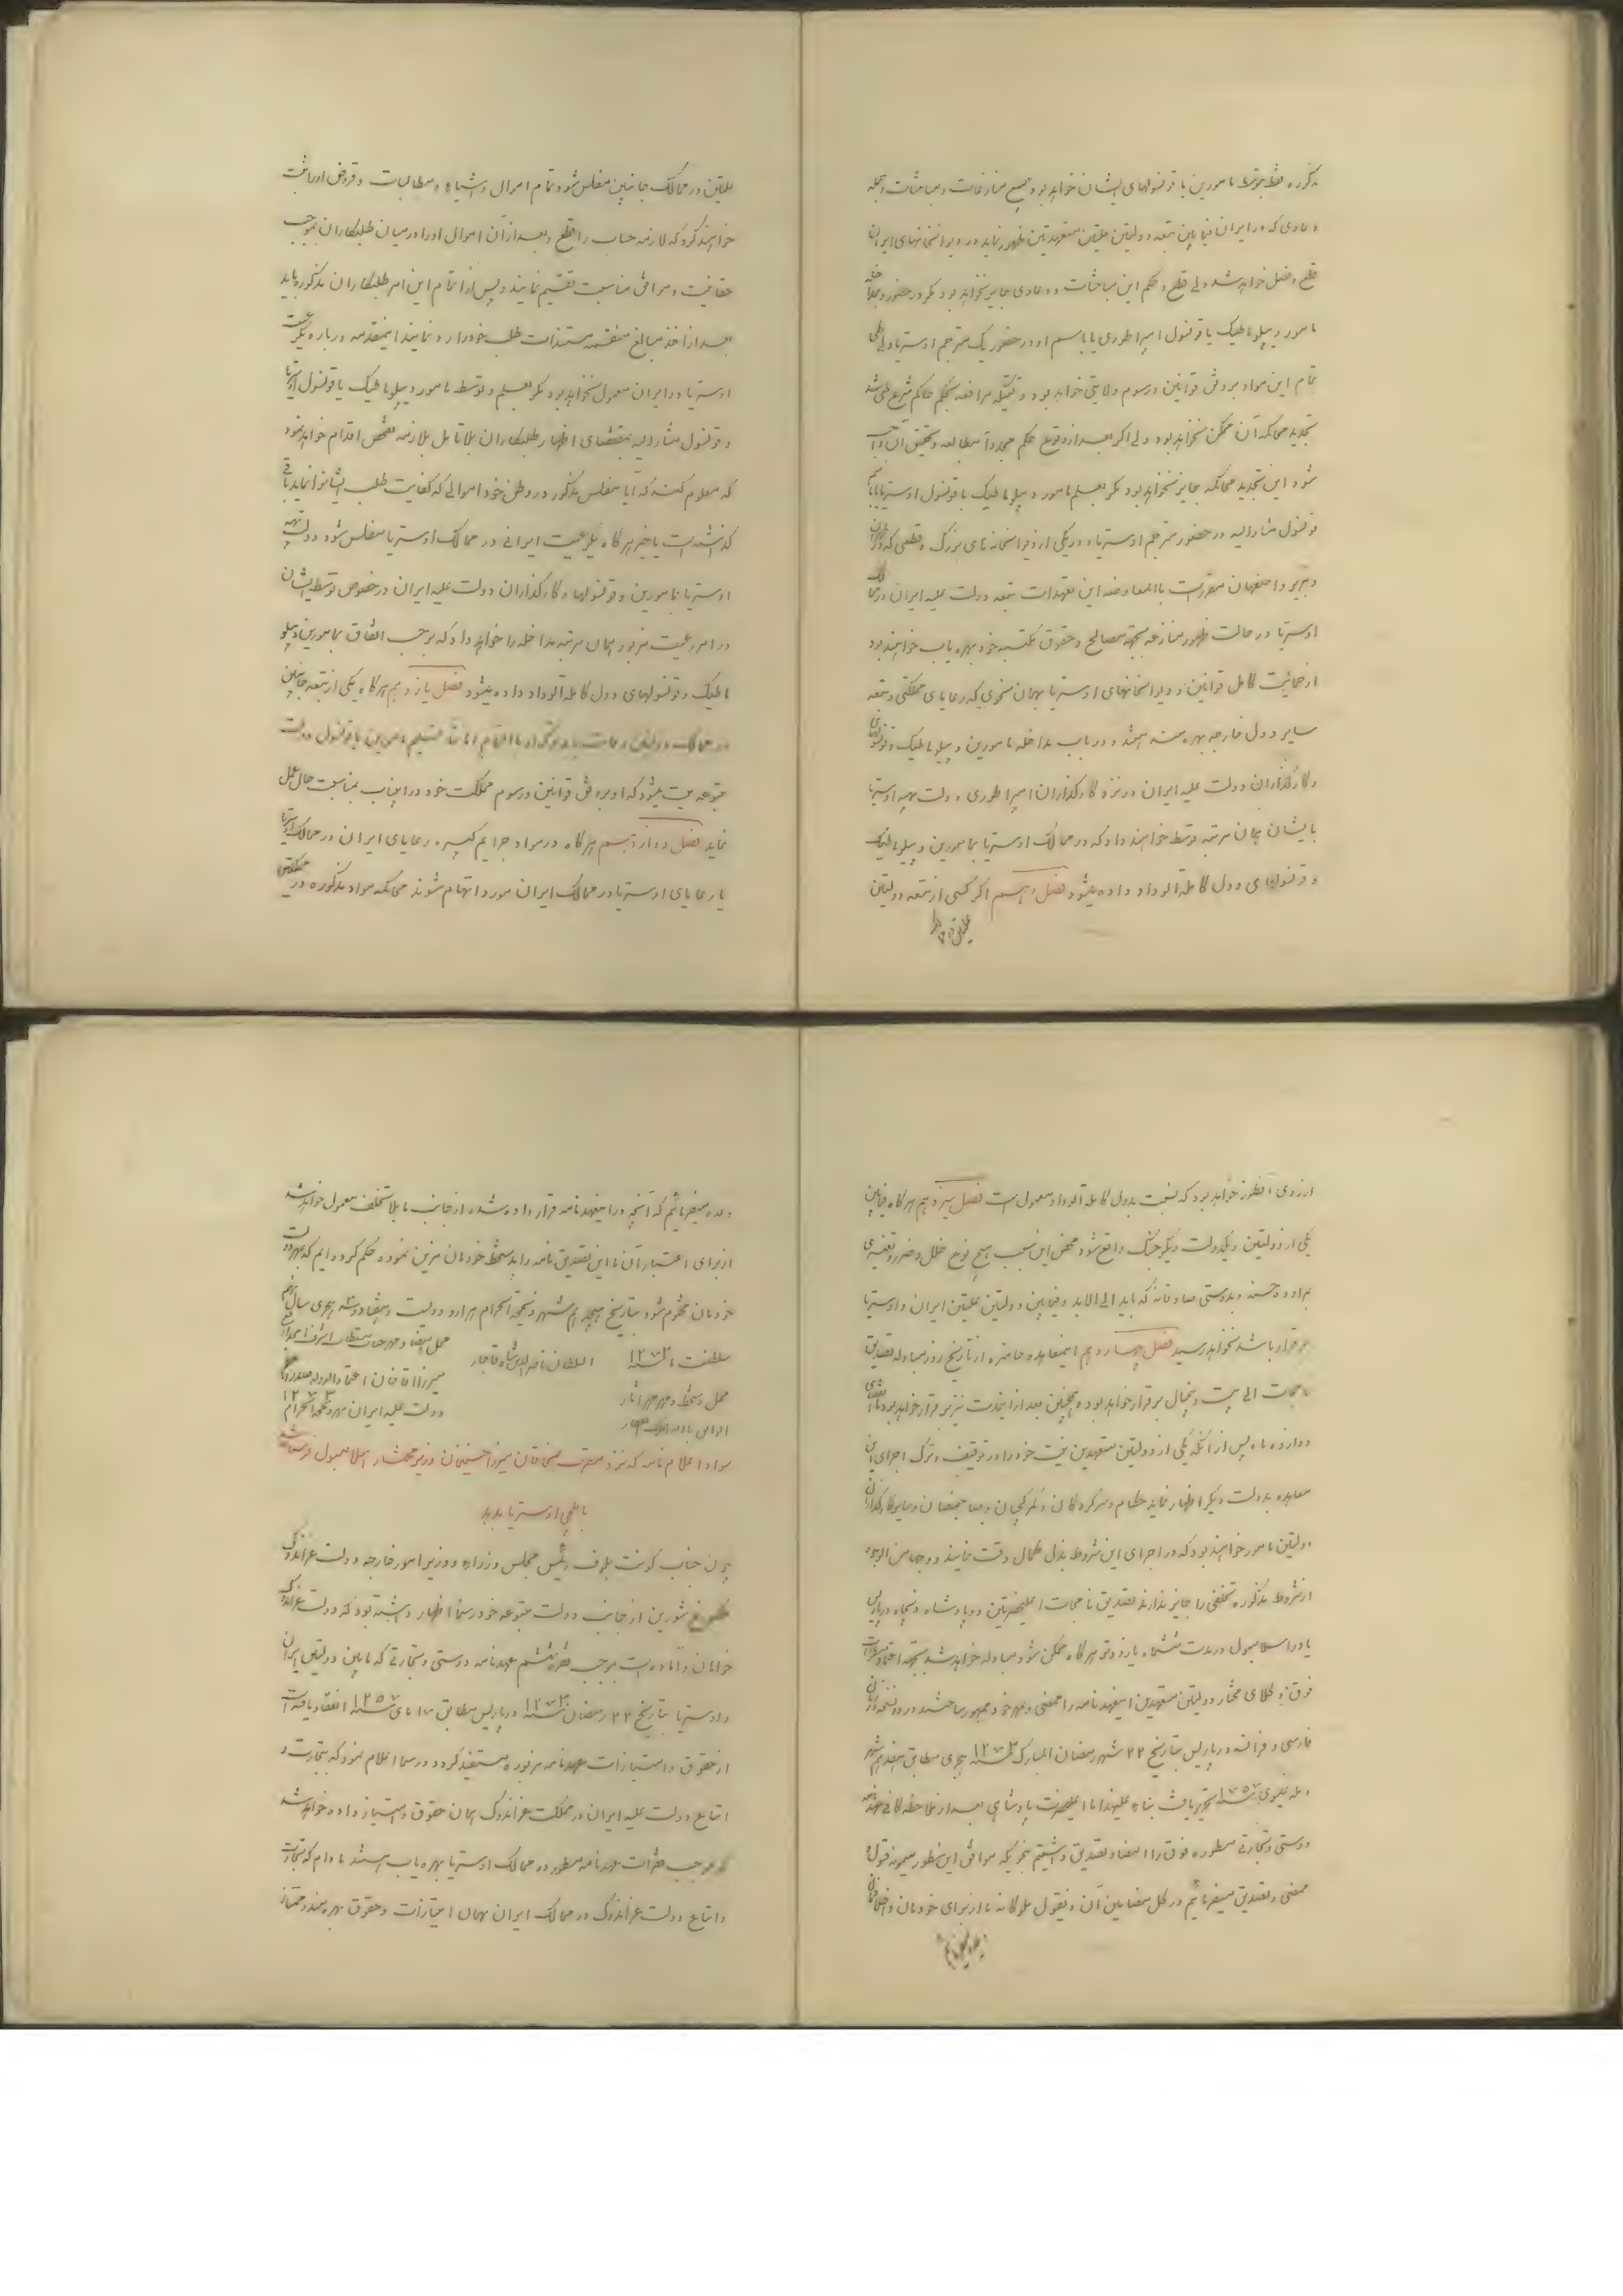 مذکوره فقط بتوسط مامورین یا قونسولهای ایشان خواهد بود و جمیع منازعات و مباحثات و جمله
دعاوی که در ایران فیمابین تبعه دولتین علیتین متعهدتین ظهور نماید در دیوانخانهای ایران
قطع و فصل خواهد شد ولی قطع و حکم این مباحثات و دعاوی جایز نخواهد بود مگر در حضور و بمداخله
مامور دیپلوماطیک یا قونسول امپراطوری یا باسم او در حضور یک مترجم اوستریا ولی طی
تمام این مواد بر وفق قوانین و رسوم ولایتی خواهد بود وقتیکه مرافعه بحکم حاکم شرع طی شد
تجدید محاکمه آن ممکن نخواهد بود ولی اگر بعد از وقوع حکم مجدداً مطالعه و تحقیق آن واجب
شود این تجدید محاکمه جایز نخواهد بود مگر بعلم مامور دیپلوماطیک یا قونسول اوستریا یا باسم
قونسول مشارالیه در حضور مترجم اوستریا و در یکی از دیوانخانه های بزرگ و قطعی که در طهران
و تبریز و اصفهان مقررست بالمعاوضه این تعهدات تبعه دولت علیه ایران در ممالک
اوستریا در حالت ظهور منازعه بجهة مصالح و حقوق مکتسبه خود بهره یاب خواهند بود
از حمایت کامل قوانین و دیوانخانهای اوستریا بهمان نحوی که رعایای مملکتی و تبعه
سایر دول خارجه بهره مند هستند و در باب مداخله مامورین دیپلوماطیک و قونسولهای
و کارگذاران دولت علیه ایران در نزد کارگذاران امپراطوری دولت بهیه اوستریا
بایشان همان مرتبه توسط خواهند داد که در ممالک اوستریا بمامورین دیپلوماطیک
و قونسولهای دول کاملة الوداد داده میشود فصل دهم اگر کسی از تبعه دولتین
علیتین در ممالک
علیتین در ممالک جانبین مفلس شود تمام اموال و اشیاء و مطالبات و قروض او را ثبت
خواهند کرد که لازمه حساب را قطع و بعد از آن اموال او را در میان طلبکاران بموجب
حقانیت و موافق مناسبت تقسیم نمایند و پس از اتمام این امر طلبکاران مذکوره باید
بعد از اخذ مبالغ منقسمه مستندات طلب خود را رد نمایند اینمقدمه درباره یکرعیت
اوستریا در ایران معمول نخواهد بود مگر بعلم و توسط مامور دیپلوماطیک یا قونسول اوستریا
و قونسول مشارالیه بمقتضای اظهار طلبکاران بلا تامل بلازمه تفحص اقدام خواهد نمود
که معلوم کند که آیا مفلس مذکور در وطن خود اموالی که کفایت طلب ایشانرا نماید باقی
گذاشته است یا خیر هرگاه یکرعیت ایرانی در ممالک اوستریا مفلس شود دولت بهیه
اوستریا بمامورین و قونسولها و کارگذاران دولت علیه ایران در خصوص توسط ایشان
در امر رعیت مزبور همان مرتبه مداخله را خواهد داد که بر حسب اتفاق بمامورین دیپلو
ماطیک و قونسولهای دول کاملة الوداد داده میشود فصل یازدهم هرگاه یکی از تبعه جانبین
در ممالک دولتین وفات یابد تسلیم مامورین یا قونسول دولت
متبوعه میت میشود که او بر وفق قوانین و رسوم مملکت خود در اینباب بمناسبت حال عمل
نماید فصل دوازدهم هرگاه در مواد جرایم کبیره رعایای ایران در ممالک اوستریا
یا رعایای اوستریا در ممالک ایران مورد اتهام شوند محاکمه مواد مذکوره در مملکتین
از روی آنطرز خواهد بود که نسبت بدول کاملة الوداد معمول است فصل سیزدهم هرگاه فیمابین
یکی از دولتین و یکدولت دیگر جنگ واقع شود محض این سبب هیچ نوع خلل و ضرر و تغییری
براوده حسنه و بدوستی صادقانه که باید الی الابد و فیمابین دولتین علیتین ایران و اوستریا
برقرار باشد نخواهد رسید فصل چهاردهم اینمعاهده حاضره از تاریخ روز مبادله تصدیق
نامجات الی بیست و پنجسال برقرار خواهد بود و همچنین بعد از اینمدت نیز برقرار خواهد بود تا انقضای
دوازده ماه پس از آنکه یکی از دولتین متعهدین نیت خود را در توقیف و ترک اجرای این
معاهده بدولت دیگر اظهار نماید حکام و سرکردگان و گمرکچیان و صاحبمنصبان و سایر کارگذاران
دولتین مامور خواهند بود که در اجرای این شروط بذل کمال دقت نمایند و وجها من الوجوه
از شروط مذکوره تخلفی را جایز ندارند تصدیق نامجات اعلیحضرتین دو پادشاه ذیجاه در پاریس
یا در اسلامبول در مدت ششماه یا زودتر هرگاه ممکن شود مبادله خواهد شد بجهة اعتماد مراتب
فوق وکلای مختار دولتین متعهدین اینعهدنامه را ممضی و بمهر خود ممهور ساختند در دو نسخه بزبان
فارسی و فرانسه در پاریس بتاریخ ۲۲ شهر رمضان المبارک سنه ۱۲۷۳ هجری مطابق هفدهم شهر
ماه عیسوی سنه ۱۸۵۷ تحریر یافت بناءً علیهذا ما اعلیحضرت پادشاهی بعد از ملاحظه کافی عهدنامه
دوستی و تجارتی مسطوره فوق را امضا و تصدیق داشتیم بنحویکه موافق این سطور میمونه قبول و
ممضی و تصدیق میفرمائیم در کل مضامین آن و بقول ملوکانه ما از برای خودمان و اخلافمان
وعده میفرمائیم
وعده میفرمائیم که آنچه در اینعهدنامه قرار داده شده از جانب ما بلا تخلف معمول خواهد شد
از برای اعتبار آن ما این تصدیق نامه را بدستخط خودمان مزین نموده حکم کرده ایم که بمهر دولت
خودمان مختوم شود بتاریخ هیجدهم شهر ذیحجة الحرام هزار و دویست و هفتاد و سه هجری سال دهم
سلطنت ما سنه ۱۲۷۳ السلطان ناصرالدین شاه قاجار
محل دستخط و مهر مهر آثار
محل امضا و مهر جناب مستطاب اشرف امجد ارفع
میرزا آقا خان اعتماد الدوله صدراعظم
دولت علیه ایران شهر ذیحجة الحرام ۱۲۷۳
سواد اعلام نامه که نزد مقرب الخاقان میرزا حسینخان وزیر مختار اسلامبول فرستاده شد
با ایلچی اوستریا بدهد
چون جناب کونت بلوف رئیس مجلس وزراء و وزیر امور خارجه دولت غراندوک
شورین از جانب دولت متبوعه خود رسماً اظهار داشته بود که دولت غراندوک
خواهان و آماده است بموجب فقره هشتم عهدنامه دوستی و تجارتی که مابین دولتین ایران
و اوستریا بتاریخ ۲۲ رمضان سنه ۱۲۷۳ در پاریس مطابق ۱۷ مای سنه ۱۸۵۷ انعقاد یافته است
از حقوق و امتیازات عهدنامه مزبوره مستفید گردد و رسماً اعلام نمود که بتجارت و
اتباع دولت علیه ایران در مملکت غراندوک همان حقوق و امتیاز داده خواهد شد
که بموجب فقرات عهدنامه مسطور در ممالک اوستریا بهره یاب هستند مادام که تجارت
و اتباع دولت غراندوک در ممالک ایران بهمان امتیازات و حقوق بهره مند و ممتاز